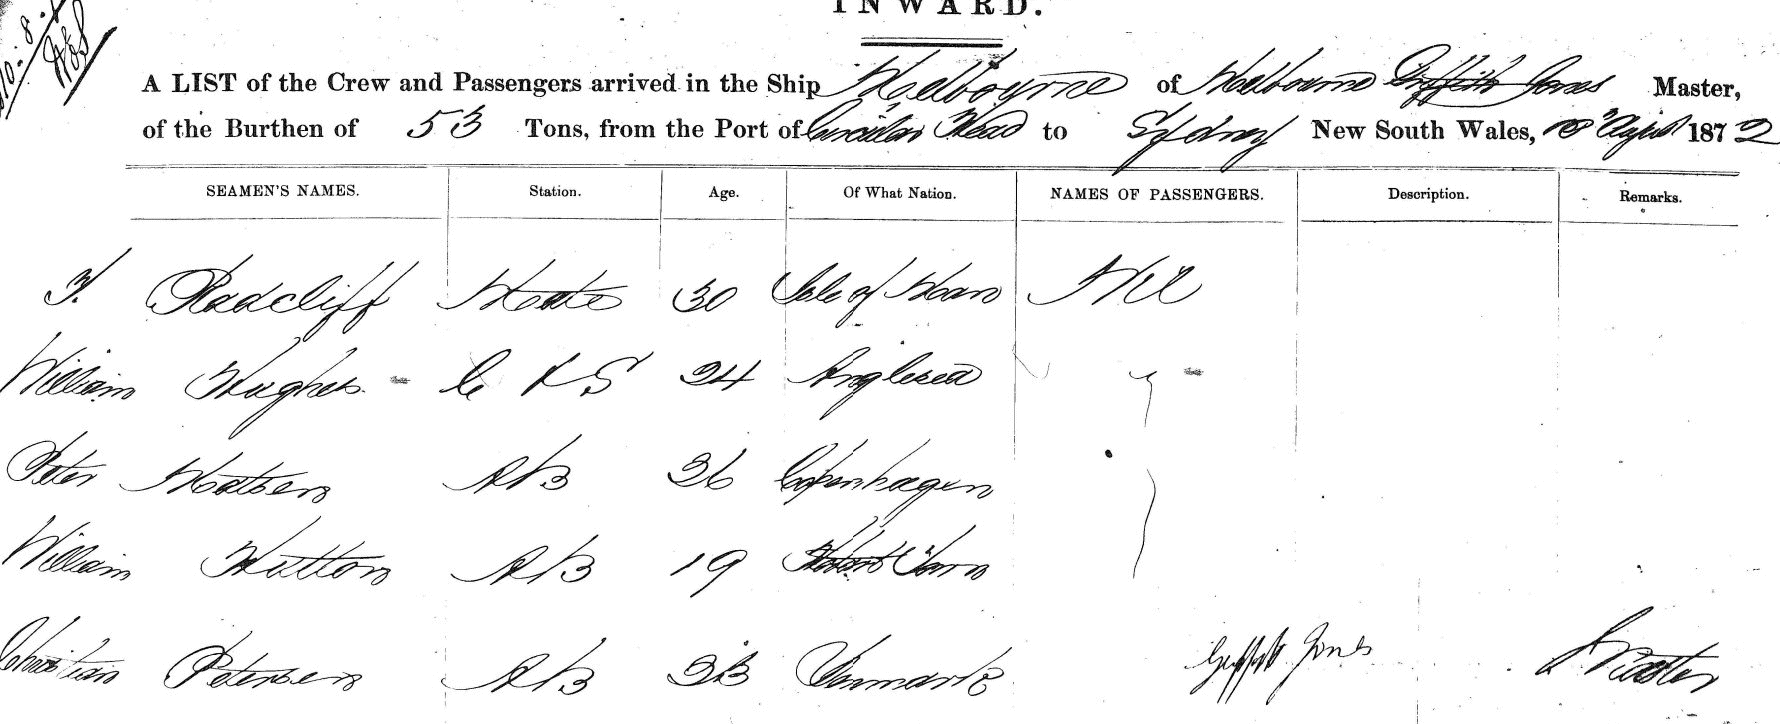 INWARD.
A LIST of the Crew and Passengers arrived in the Ship Melbourne of Melbourne Griffith Jones Master,
of the Burthen of 53 Tons, from the Port of Circular Head to Sydney New South Wales, August 1872
SEAMEN'S NAMES. Station. Age. Of What Nation. NAMES OF PASSENGERS. Description. Remarks.
Radcliff Mate 30 Isle of Man Nil
William Hughes C & S 24 Anglesea
Peter AB 26 Copenhagen
William Hutton AB 19 Hobart Town
Christian Petersen AB Denmark
Griffith Jones Master